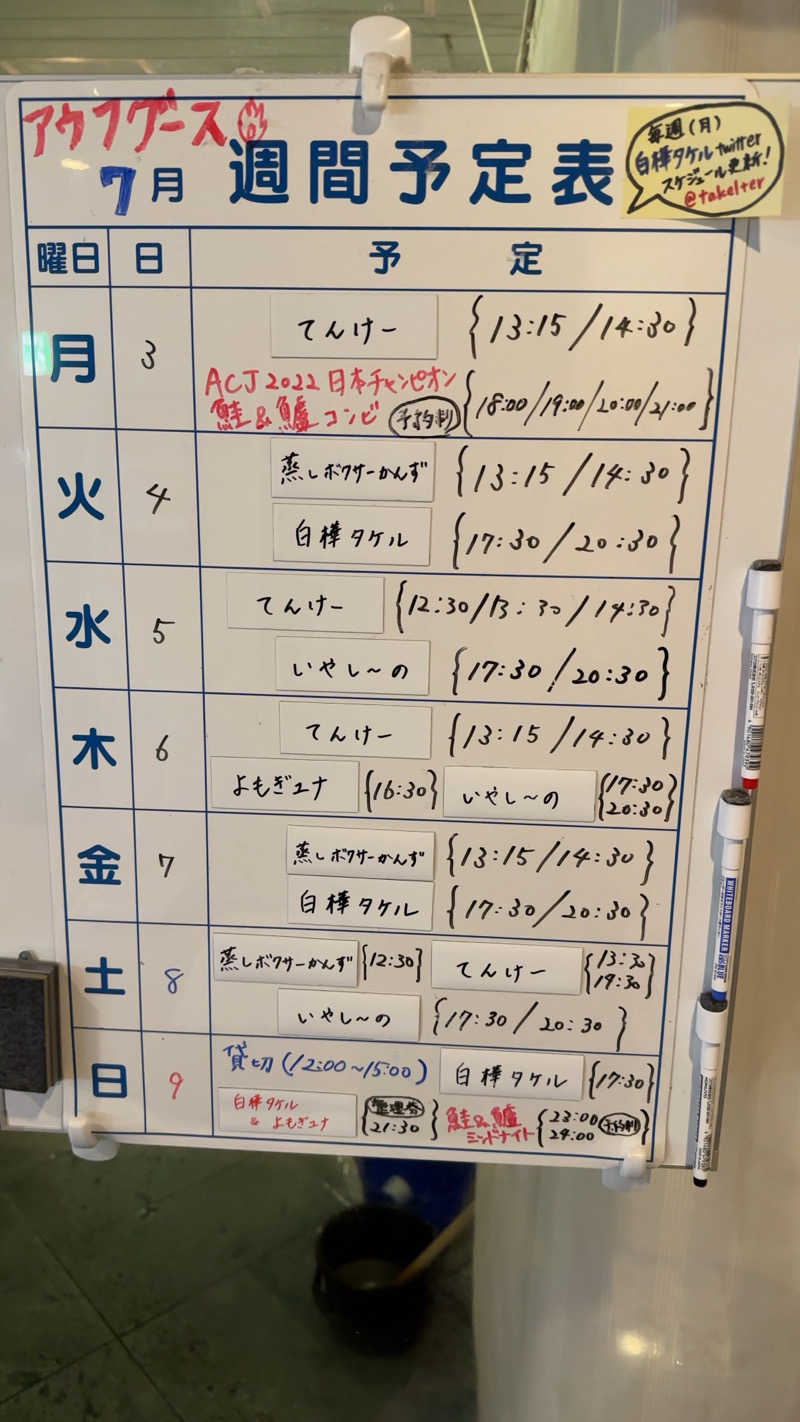 アウフグース
7月 週間予定表
毎週(月)
白樺タケルtwitter
スケジュール更新!
@takelter
曜日 日 予定
月 3 てんけー {13:15/14:30}
ACJ2022日本チャンピオン
鮭&鱸コンビ 予約制 {18:00/19:00/20:00/21:00}
火 4 蒸しボクサーかんず {13:15/14:30}
白樺タケル {17:30/20:30}
水 5 てんけー {12:30/13:30/14:30}
いやし~の {17:30/20:30}
木 6 てんけー {13:15/14:30}
よもぎユナ {16:30} いやし~の {17:30 20:30}
金 7 蒸しボクサーかんず {13:15/14:30}
白樺タケル {17:30/20:30}
土 8 蒸しボクサーかんず {12:30} てんけー {13:30 19:30}
いやし~の {17:30/20:30}
日 9 貸切(12:00~15:00) 白樺タケル {17:30}
白樺タケル
& よもぎユナ {整理券 21:30}
鮭&鱸
ミッドナイト {23:00 24:00 予約制}
WHITEBOARD MARKER
BLUE